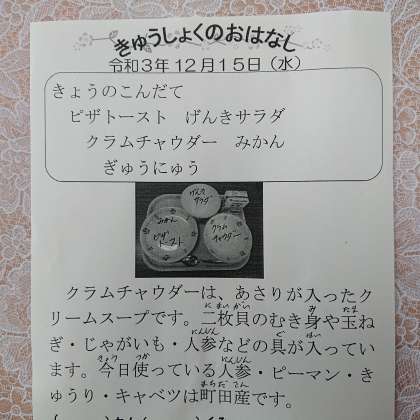 きゅうしょくのおはなし
令和3年12月15日（水）
きょうのこんだて
ピザトースト　げんきサラダ
クラムチャウダー　みかん
ぎゅうにゅう
げんき
サラダ
みかん
ピザ
トースト
クラム
チャウダー
クラムチャウダーは、あさりが入ったク
リームスープです。二枚貝のむき身や玉ね
ぎ・じゃがいも・人参などの具が入ってい
ます。今日使っている人参・ピーマン・き
ゅうり・キャベツは町田産です。